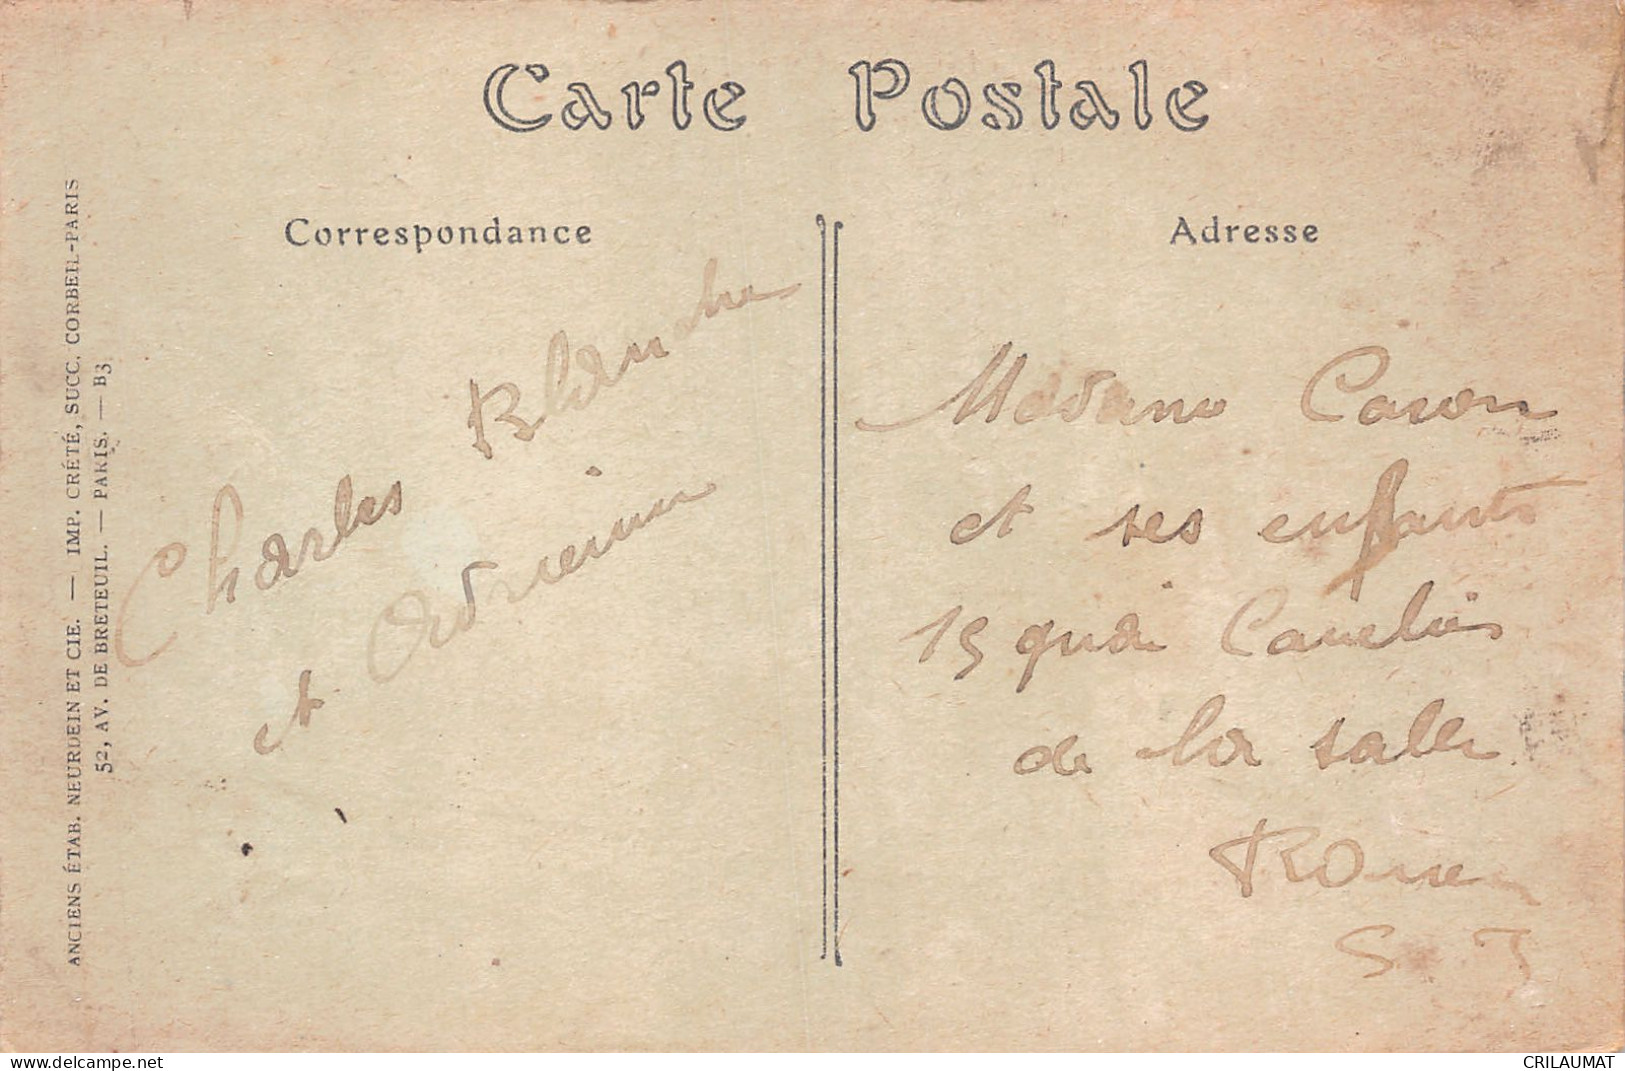 Carte Postale
Correspondance
Adresse
ANCIENS ÉTAB. NEURDEIN ET CIE. — IMP. CRÉTÉ, SUCC. CORBEIL-PARIS
52, AV. DE BRETEUIL. — PARIS. — B3
Charles Blanche
et Adrienne
Madame Caron
et ses enfants
15 quai Cavelier
de la salle
Rouen
S. I
delcampe.net
CRILAUMAT